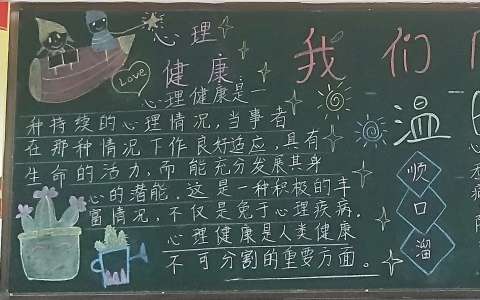 心理
健康:
Love
心理健康是一
种持续的心理情况,当事者
在那种情况下作良好适应,具有
生命的活力,而能充分发展其身
心的潜能。这是一种积极的丰
富情况,不仅是免于心理疾病。
心理健康是人类健康
不可分割的重要方面。
我们
温
顺口溜